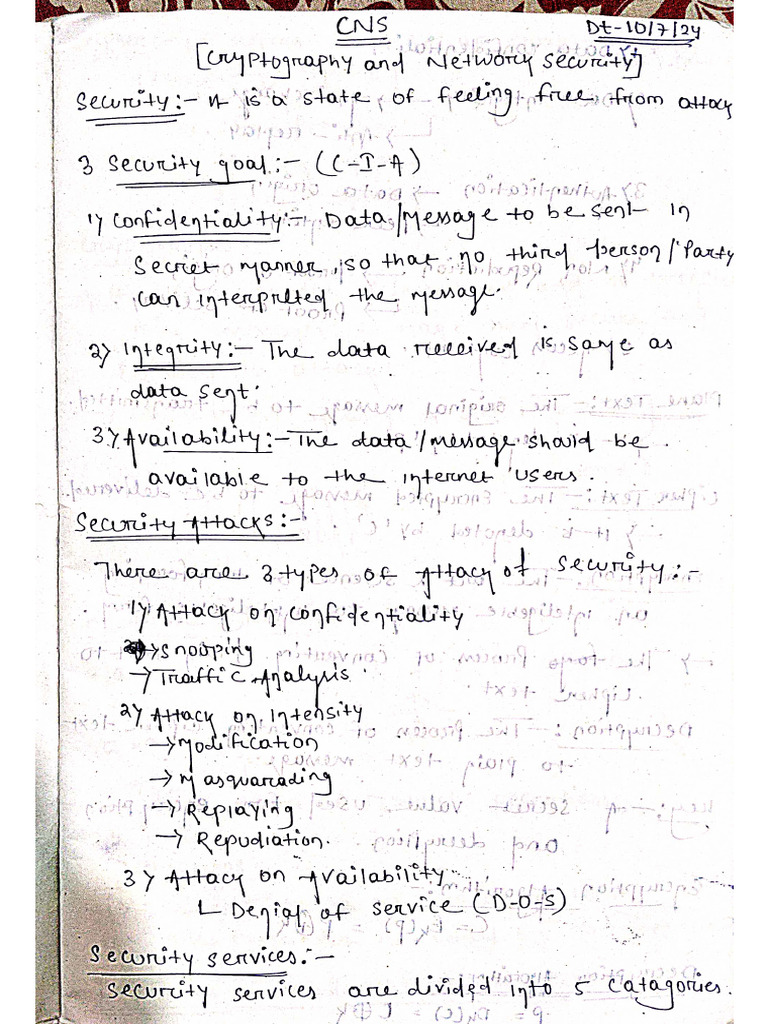 CNS
Dt-10/7/24
[Cryptography and Network Security]
Security:- It is a state of feeling free from attack
3 Security goal:- (C-I-A)
1) Confidentiality:- Data/Message to be sent in
Secret manner, so that no third person/Party
can interpreted the message.
2) Integrity:- The data received is same as
data sent.
3) Availability:- The data/message should be
available to the internet users.
Security Attacks:-
There are 3 types of Attack of Security:-
1) Attack on confidentiality
→ Snooping
→ Traffic Analysis.
2) Attack on Intensity
→ Modification
→ Masquarading
→ Replaying
→ Repudiation.
3) Attack on Availability
↳ Denial of service (D-O-S)
Security services:-
Security services are divided into 5 catagories.